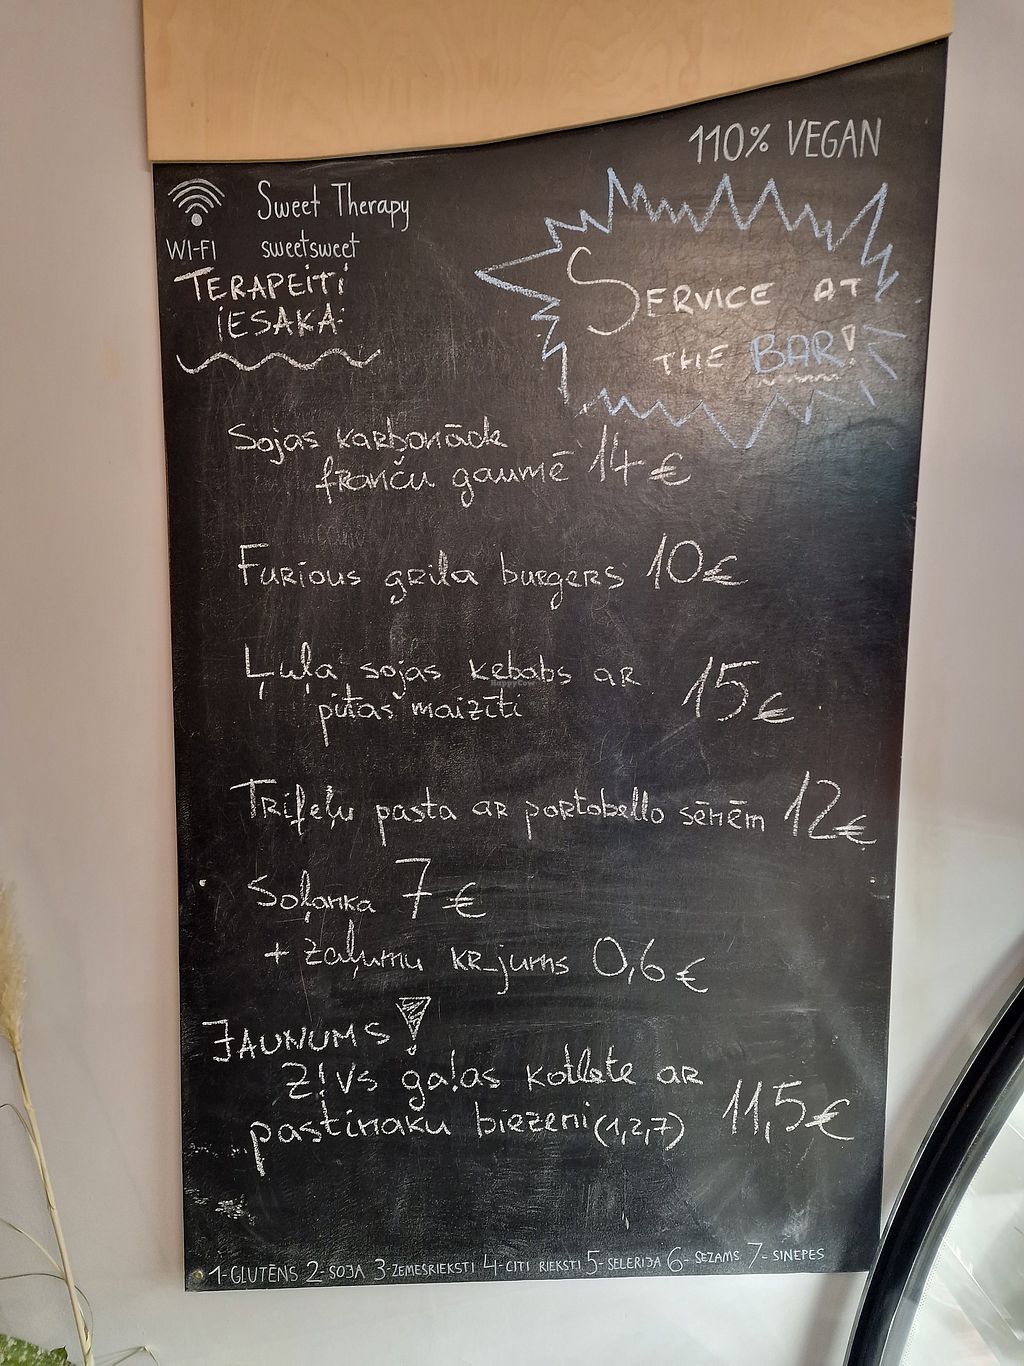 110% VEGAN
Sweet Therapy
WI-FI sweetsweet
TERAPEITI
IESAKA:
SERVICE AT
THE BAR!
Sojas karbonāde
franču gaumē 14€
Furious grila burgers 10€
Ļuļa sojas kebabs ar
pitas maizīti 15€
HappyCow
Trifeļu pasta ar portobello sēnēm 12€
Soļanka 7€
+ zaļumu kr_jums 0,6€
JAUNUMS!
Z!vs ga!as kotlete ar
pastinaku biezeni (1,2,7) 11,5€
1-GLUTĒNS 2-SOJA 3-ZEMESRIEKSTI 4-CITI RIEKSTI 5-SELERIJA 6-SEZAMS 7-SINEPES